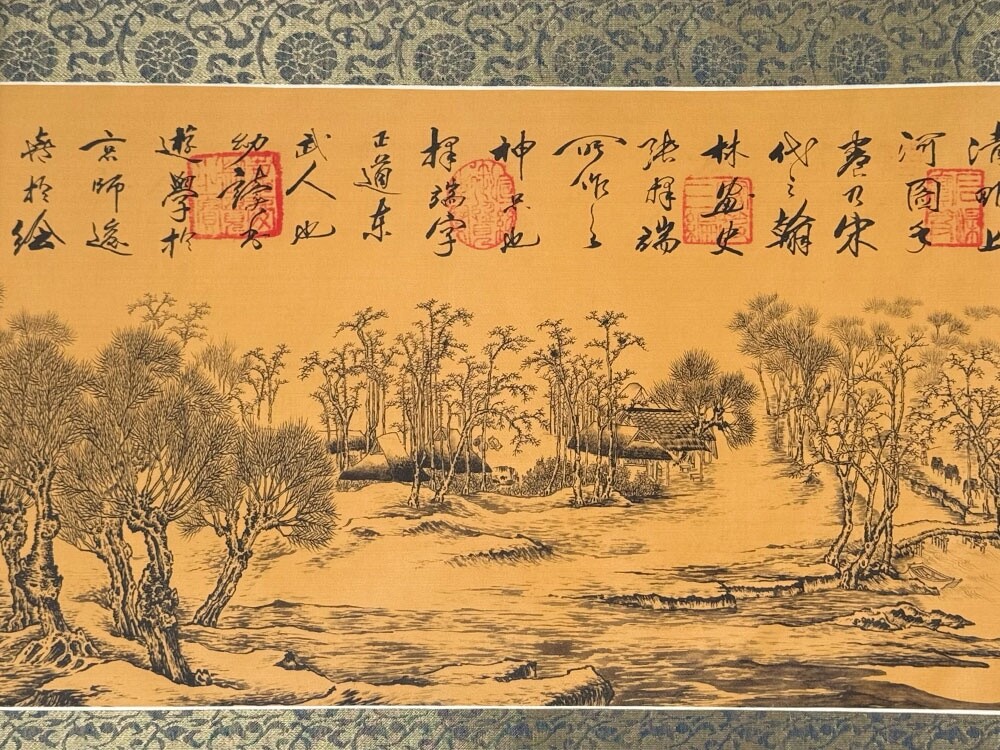 清明上
河圖手
卷乃宋
代之翰
林畫史
張擇端
所作之
神品也
擇端字
正道東
武人也
幼讀書
遊學於
京師遂
喜於繪